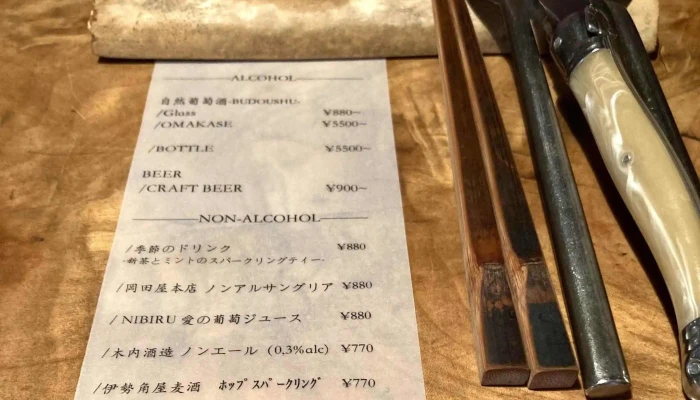 ALCOHOL
自然葡萄酒-BUDOUSHU-
/Glass ¥880~
/OMAKASE ¥5500~
/BOTTLE ¥5500~
BEER
/CRAFT BEER ¥900~
NON-ALCOHOL
/季節のドリンク ¥880
-新茶とミントのスパークリングティー-
/岡田屋本店 ノンアルサングリア ¥880
/NIBIRU 愛の葡萄ジュース ¥880
/木内酒造 ノンエール (0,3%alc) ¥770
/伊勢角屋麦酒 ﾎｯﾌﾟｽﾊﾟｰｸﾘﾝｸﾞ ¥770